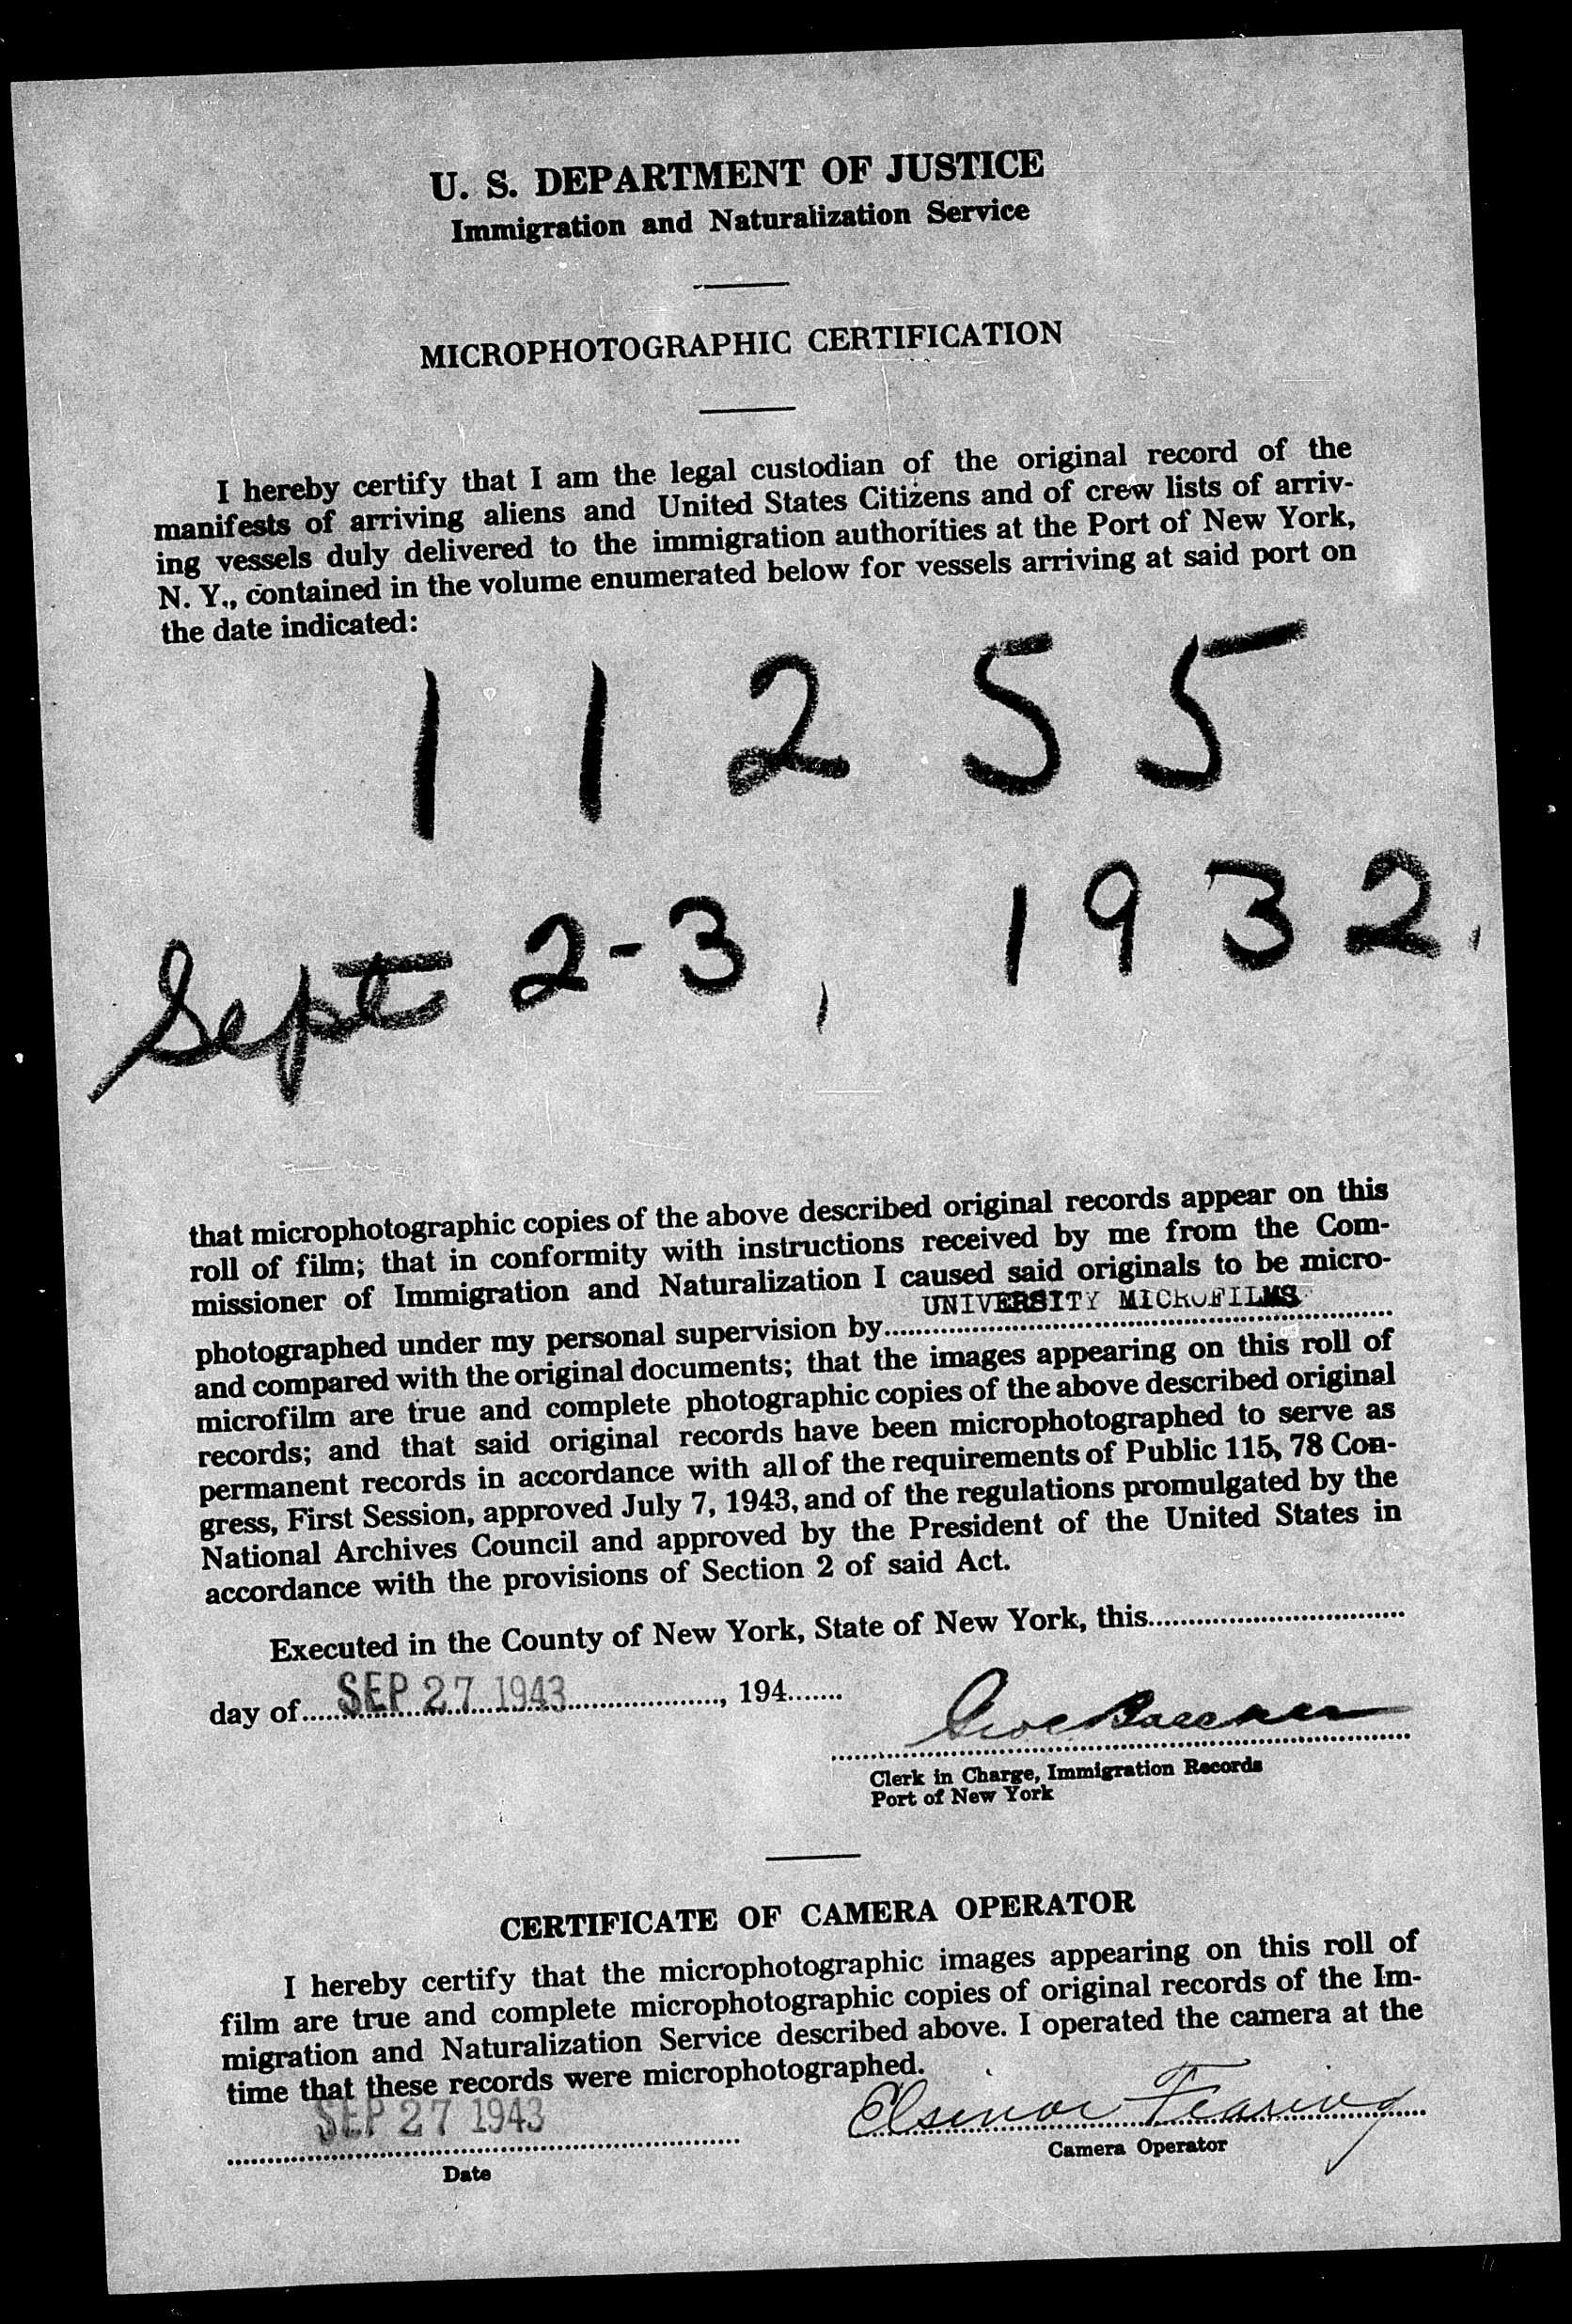 U. S. DEPARTMENT OF JUSTICE
Immigration and Naturalization Service
MICROPHOTOGRAPHIC CERTIFICATION
I hereby certify that I am the legal custodian of the original record of the
manifests of arriving aliens and United States Citizens and of crew lists of arriv-
ing vessels duly delivered to the immigration authorities at the Port of New York,
N. Y., contained in the volume enumerated below for vessels arriving at said port on
the date indicated:
11255
Sept 2-3, 1932.
that microphotographic copies of the above described original records appear on this
roll of film; that in conformity with instructions received by me from the Com-
missioner of Immigration and Naturalization I caused said originals to be micro-
UNIVERSITY MICROFILMS
photographed under my personal supervision by
and compared with the original documents; that the images appearing on this roll of
microfilm are true and complete photographic copies of the above described original
records; and that said original records have been microphotographed to serve as
permanent records in accordance with all of the requirements of Public 115, 78 Con-
gress, First Session, approved July 7, 1943, and of the regulations promulgated by the
National Archives Council and approved by the President of the United States in
accordance with the provisions of Section 2 of said Act.
Executed in the County of New York, State of New York, this
day of SEP 27 1943, 194
Clerk in Charge, Immigration Records
Port of New York
CERTIFICATE OF CAMERA OPERATOR
I hereby certify that the microphotographic images appearing on this roll of
film are true and complete microphotographic copies of original records of the Im-
migration and Naturalization Service described above. I operated the camera at the
time that these records were microphotographed.
SEP 27 1943
Elsenor Fearing
Date
Camera Operator